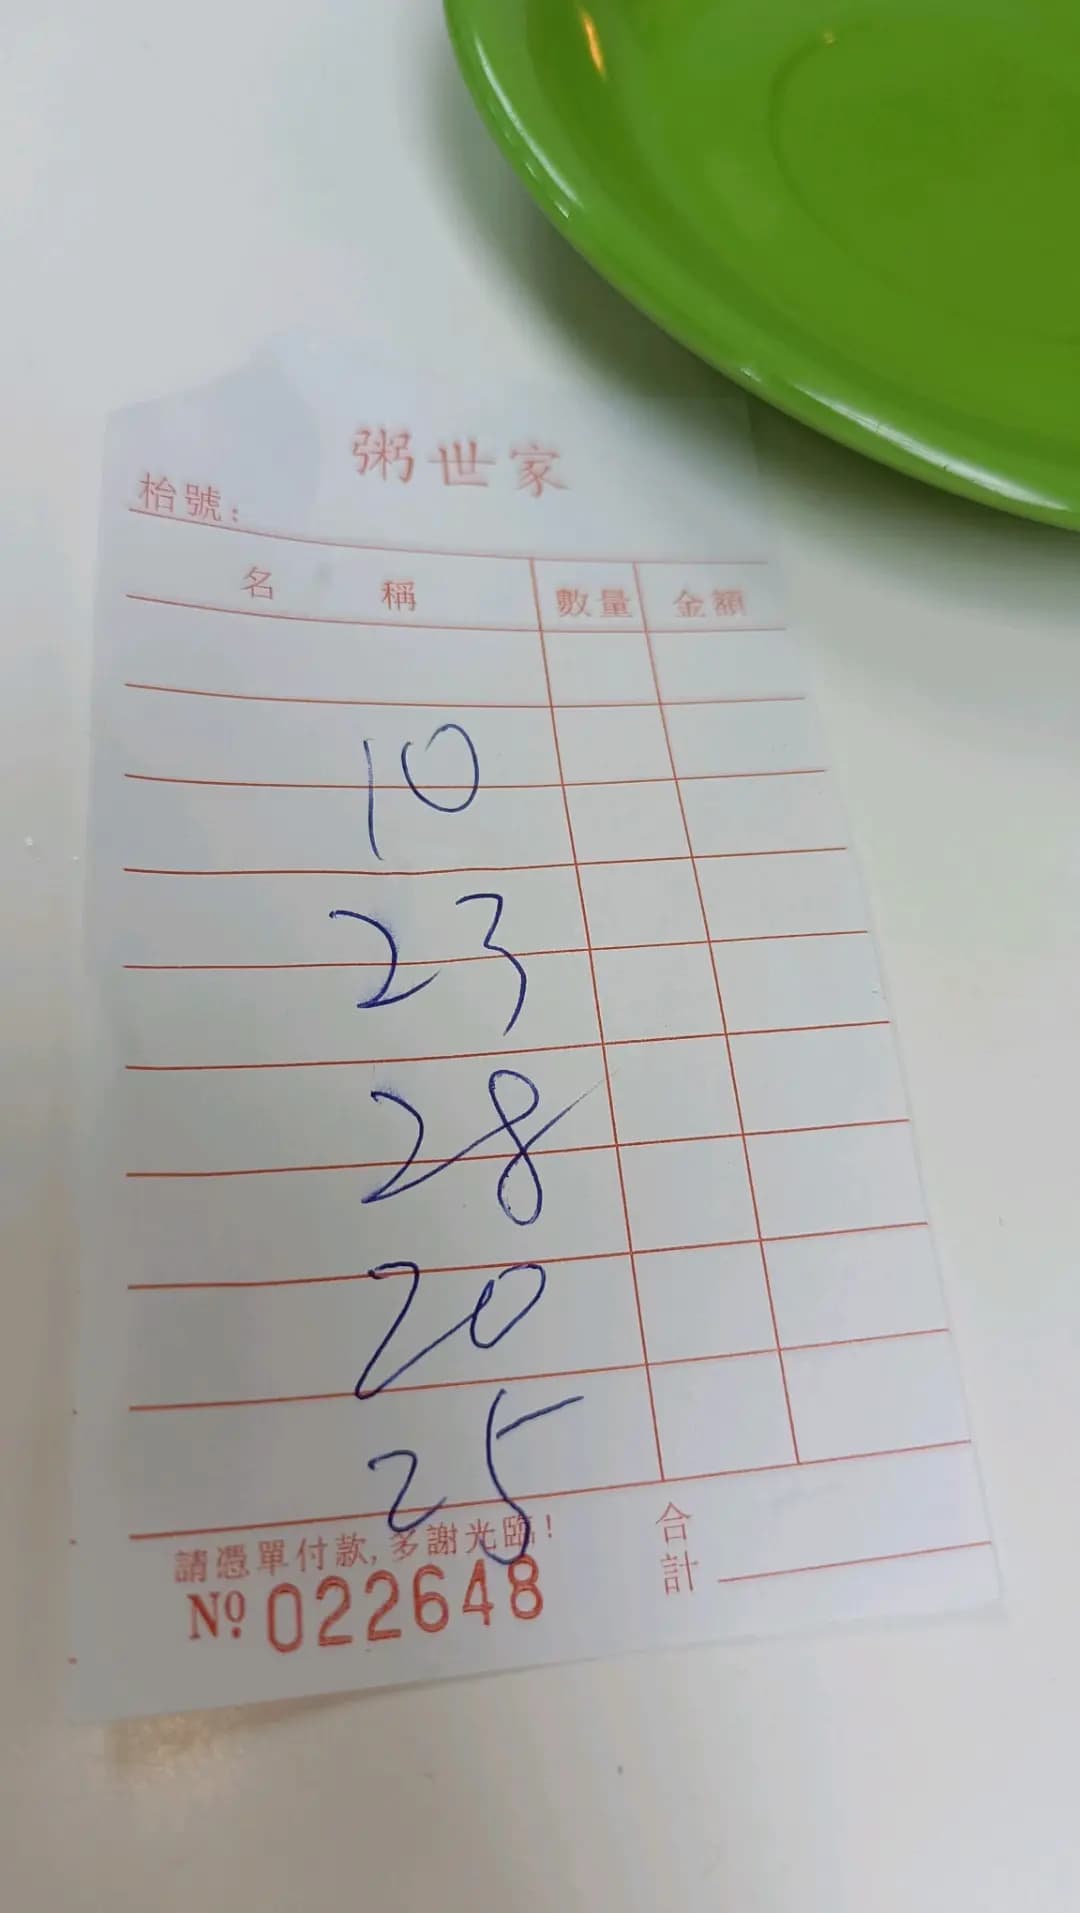 粥世家
枱號:
名 稱 數量 金額
10
23
28
20
25
請憑單付款,多謝光臨!
合計
Nº 022648